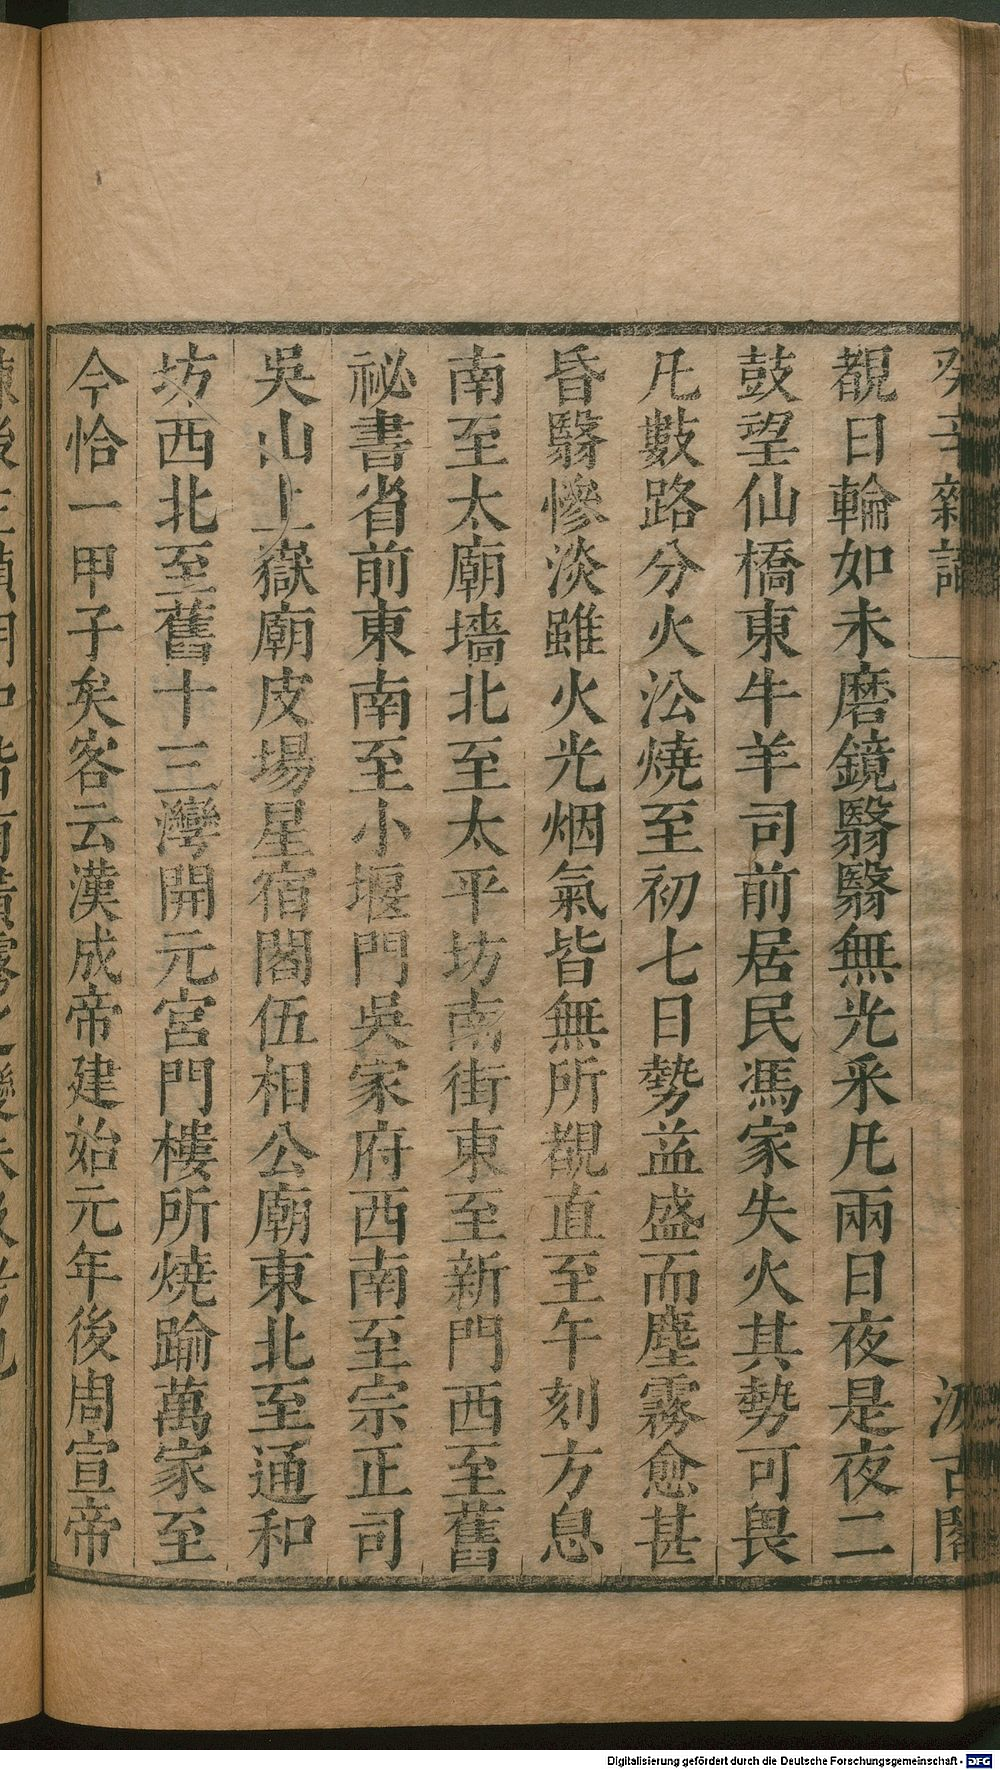 癸辛雜識
汲古閣
覩日輪如未磨鏡翳翳無光采凡兩日夜是夜二
鼓望仙橋東牛羊司前居民馮家失火其勢可畏
凡數路分火㳂燒至初七日勢益盛而塵霧愈甚
昏翳慘淡雖火光烟氣皆無所覩直至午刻方息
南至太廟墻北至太平坊南街東至新門西至舊
祕書省前東南至小堰門吳家府西南至宗正司
吳山上嶽廟皮場星宿閣伍相公廟東北至通和
坊西北至舊十三灣開元宮門樓所燒踰萬家至
今恰一甲子矣客云漢成帝建始元年後周宣帝
Digitalisierung gefördert durch die Deutsche Forschungsgemeinschaft - DFG